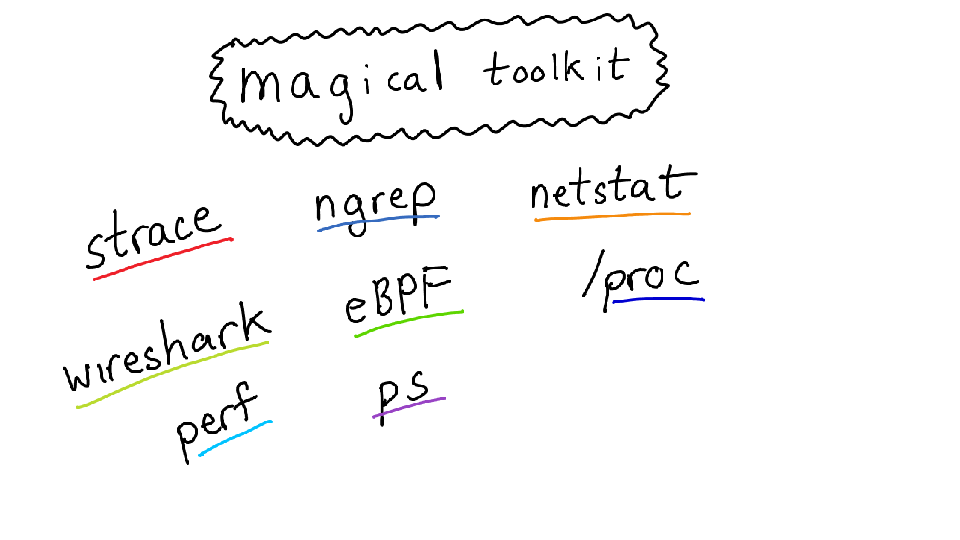 magical toolkit
strace
ngrep
netstat
eBPF
/proc
wireshark
perf
ps